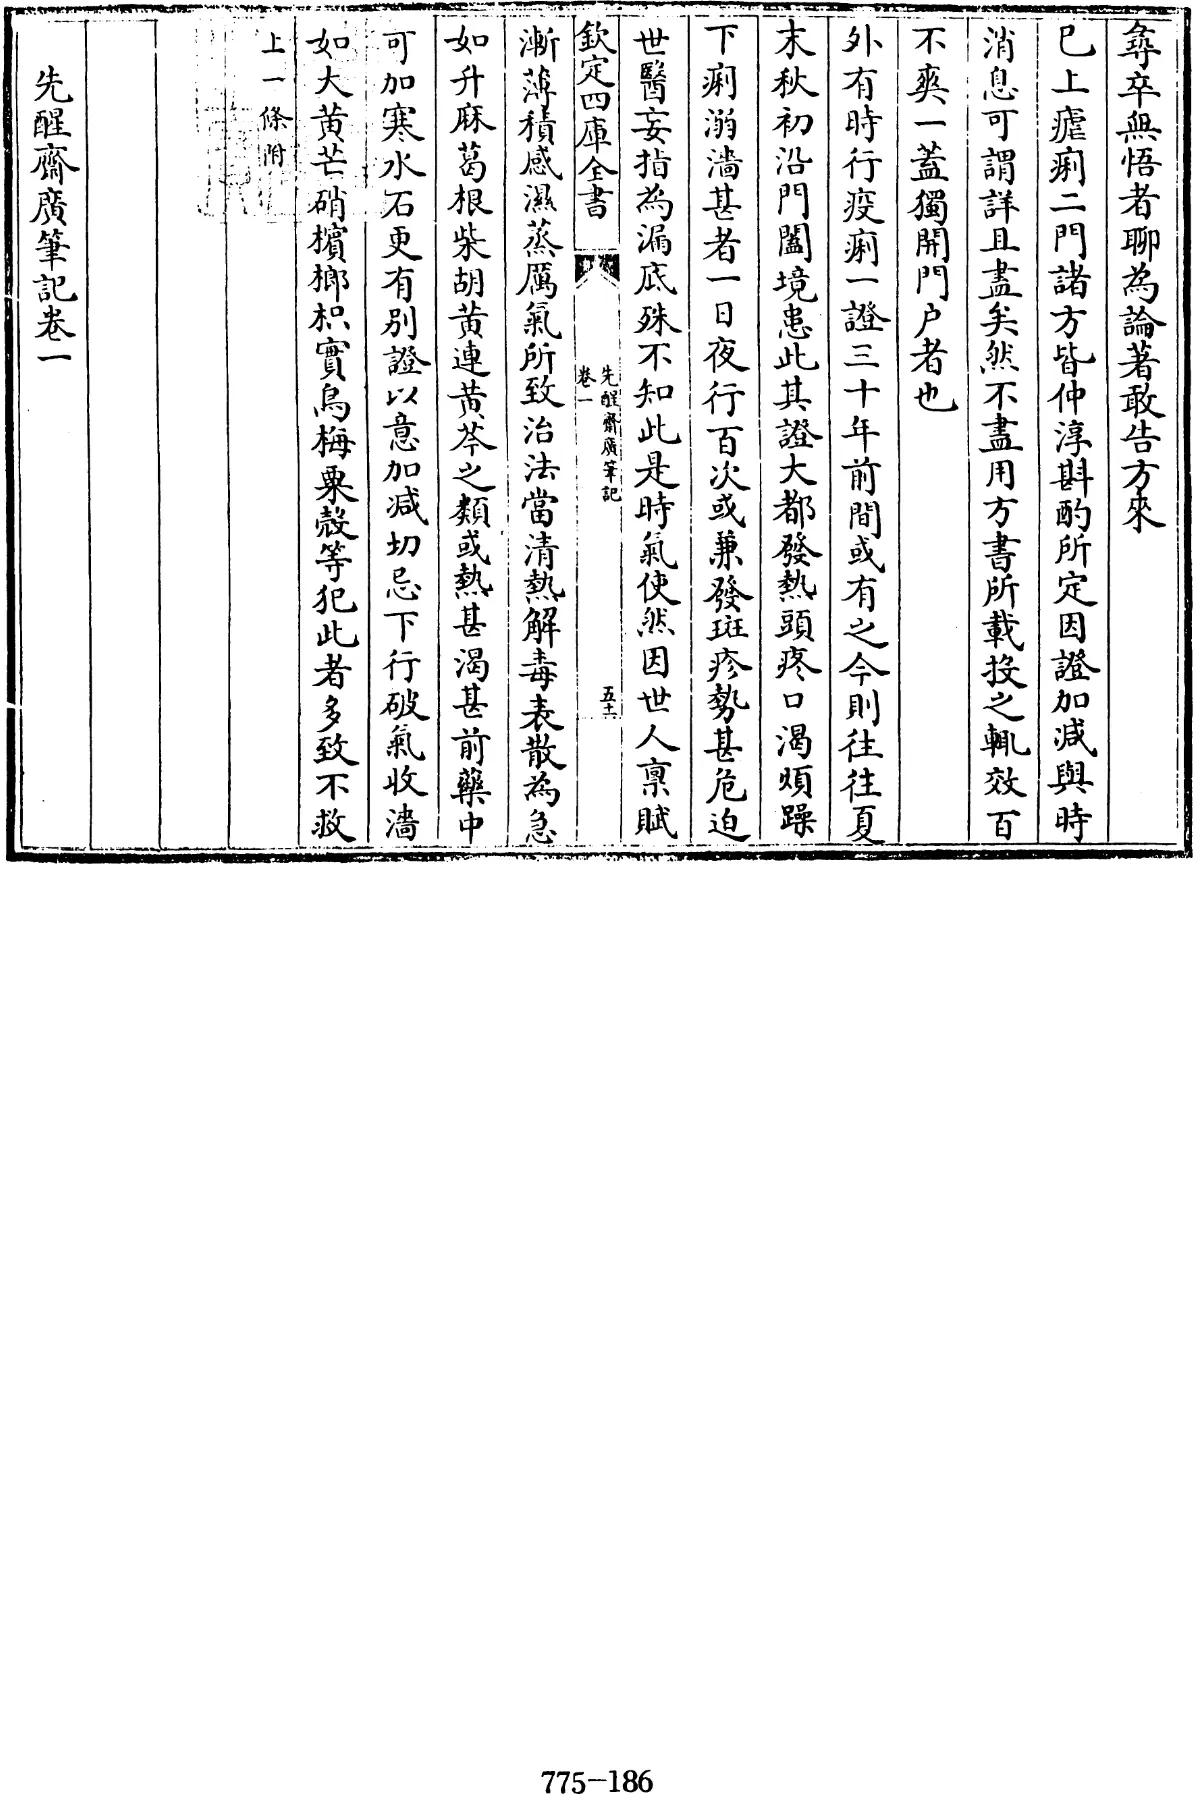 彞卒無悟者聊為論著敢告方來
已上瘧痢二門諸方皆仲淳斟酌所定因證加減與時
消息可謂詳且盡矣然不盡用方書所載投之輒效百
不爽一蓋獨開門户者也
外有時行疫痢一證三十年前間或有之今則往往夏
末秋初沿門闔境患此其證大都發熱頭疼口渴煩躁
下痢溺濇甚者一日夜行百次或兼發斑疹勢甚危迫
世醫妄指為漏底殊不知此是時氣使然因世人禀賦
欽定四庫全書
先醒齋廣筆記
卷一
五十
漸薄積感濕蒸厲氣所致治法當清熱解毒表散為急
如升麻葛根柴胡黄連黄芩之類或熱甚渴甚前藥中
可加寒水石更有别證以意加減切忌下行破氣收濇
如大黄芒硝檳榔枳實烏梅粟殼等犯此者多致不救
上一條附
先醒齋廣筆記卷一
775-186